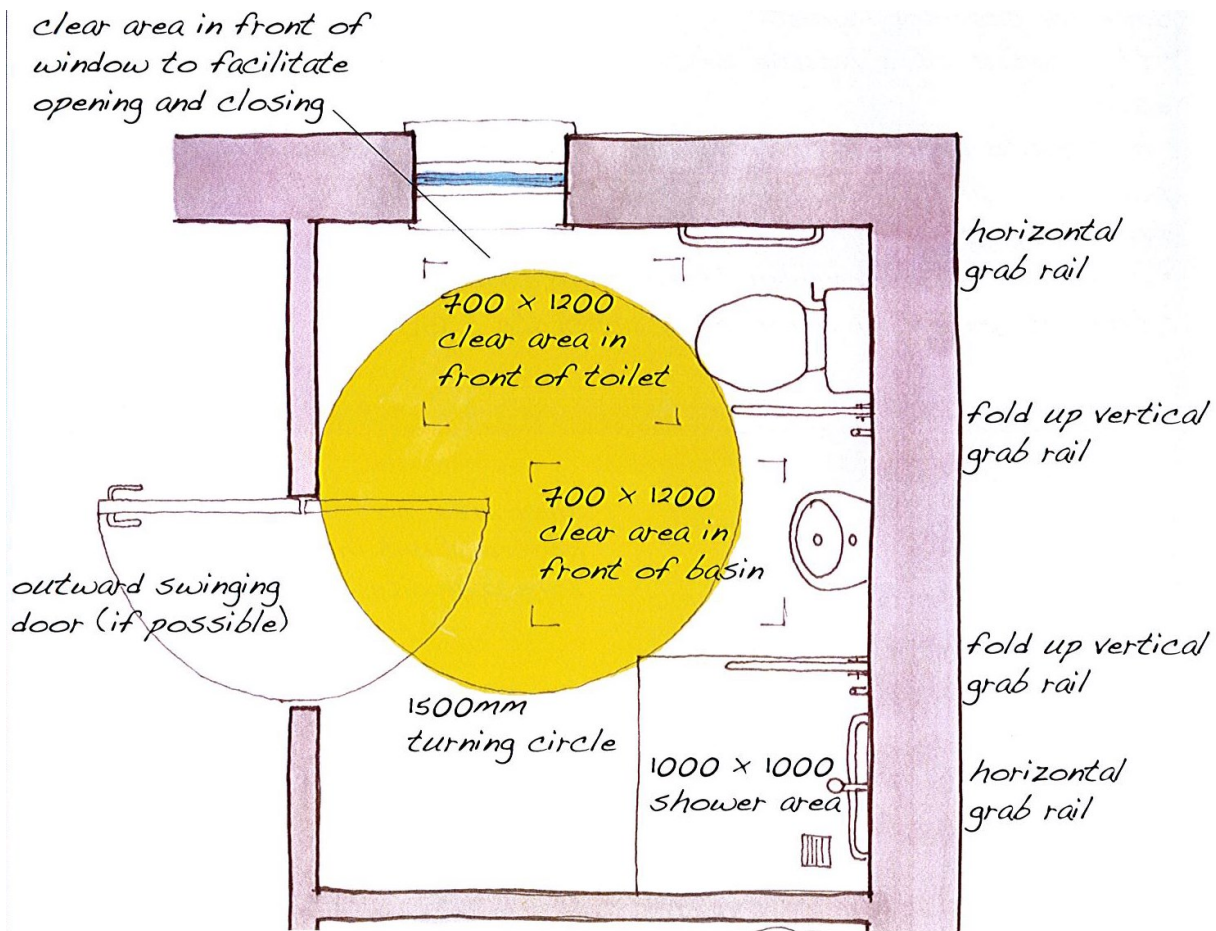 clear area in front of
window to facilitate
opening and closing
horizontal
grab rail
700 x 1200
clear area in
front of toilet
fold up vertical
grab rail
700 x 1200
clear area in
front of basin
outward swinging
door (if possible)
fold up vertical
grab rail
1500mm
turning circle
1000 x 1000
shower area
horizontal
grab rail